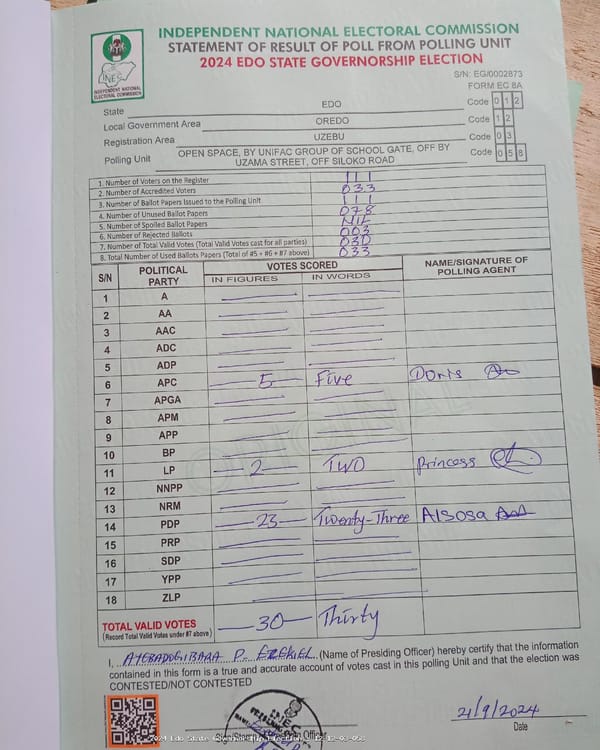 INDEPENDENT NATIONAL ELECTORAL COMMISSION
STATEMENT OF RESULT OF POLL FROM POLLING UNIT
2024 EDO STATE GOVERNORSHIP ELECTION
INEC
INDEPENDENT NATIONAL
ELECTORAL COMMISSION
S/N: EG/0002873
FORM EC 8A
State EDO Code 0 1 2
Local Government Area OREDO Code 1 2
Registration Area UZEBU Code 0 3
Polling Unit OPEN SPACE, BY UNIFAC GROUP OF SCHOOL GATE, OFF BY Code 0 5 8
UZAMA STREET, OFF SILOKO ROAD
1. Number of Voters on the Register 111
2. Number of Accredited Voters 033
3. Number of Ballot Papers Issued to the Polling Unit 111
4. Number of Unused Ballot Papers 078
5. Number of Spoiled Ballot Papers NIL
6. Number of Rejected Ballots 003
7. Number of Total Valid Votes (Total Valid Votes cast for all parties) 030
8. Total Number of Used Ballots Papers (Total of #5 + #6 + #7 above) 033
S/N POLITICAL PARTY VOTES SCORED NAME/SIGNATURE OF POLLING AGENT
IN FIGURES IN WORDS
1 A
2 AA
3 AAC
4 ADC
5 ADP
6 APC 5 Five Doris
7 APGA
8 APM
9 APP
10 BP
11 LP 2 TWO Princess
12 NNPP
13 NRM
14 PDP 23 Twenty-Three AISOSA
15 PRP
16 SDP
17 YPP
18 ZLP
TOTAL VALID VOTES 30 Thirty
(Record Total Valid Votes under #7 above)
I, P. EZEKIEL (Name of Presiding Officer) hereby certify that the information
contained in this form is a true and accurate account of votes cast in this polling Unit and that the election was
CONTESTED/NOT CONTESTED
21/9/2024
Date